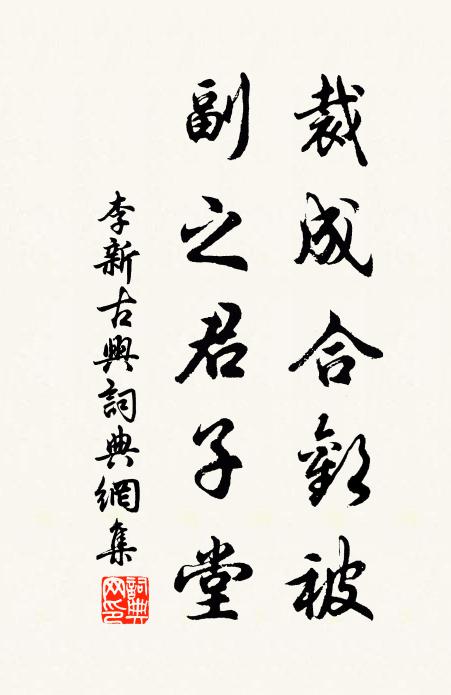 裁成合歡被
副之君子堂
李新古典詞典網集
詞典網印